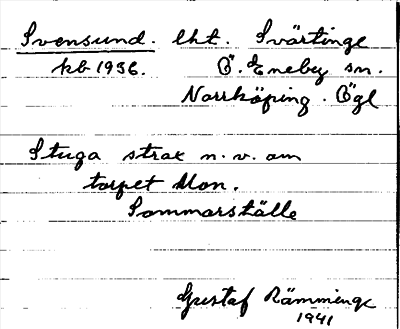 Svensund. lht. Svärtinge
kb 1936. Ö. Eneby sn.
Norrköping. Ögl
Stuga strax n. v. om
torpet Mon.
Sommarställe
Gustaf Rämminge
1941